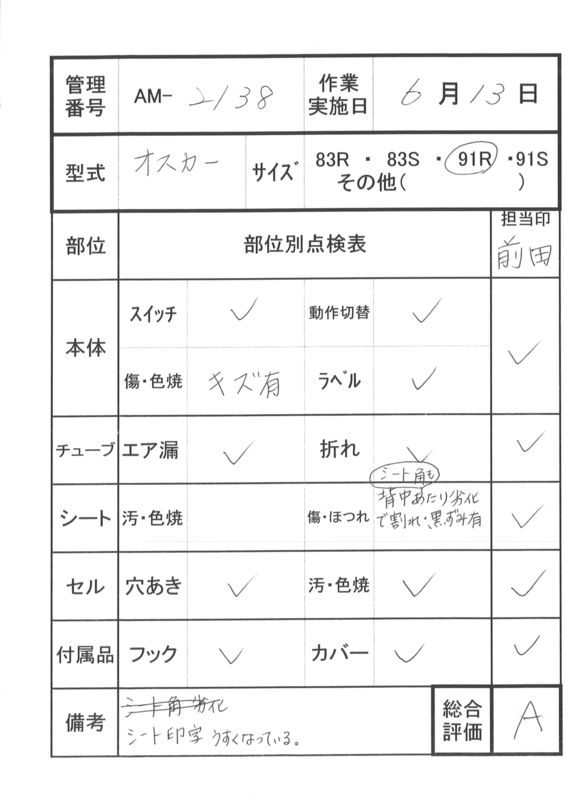 管理番号 AM- 2138 作業実施日 6月13日
型式 オスカー サイズ 83R ・ 83S ・ 91R ・91S
その他( )
部位 部位別点検表 担当印 前田
本体 スイッチ ✓ 動作切替 ✓ ✓
傷・色焼 キズ有 ラベル ✓
チューブ エア漏 ✓ 折れ ✓ ✓
シート 汚・色焼 傷・ほつれ シート角も
背中あたり劣化
で割れ・黒ずみ有 ✓
セル 穴あき ✓ 汚・色焼 ✓ ✓
付属品 フック ✓ カバー ✓ ✓
備考 シート角劣化
シート印字うすくなっている。
総合評価 A